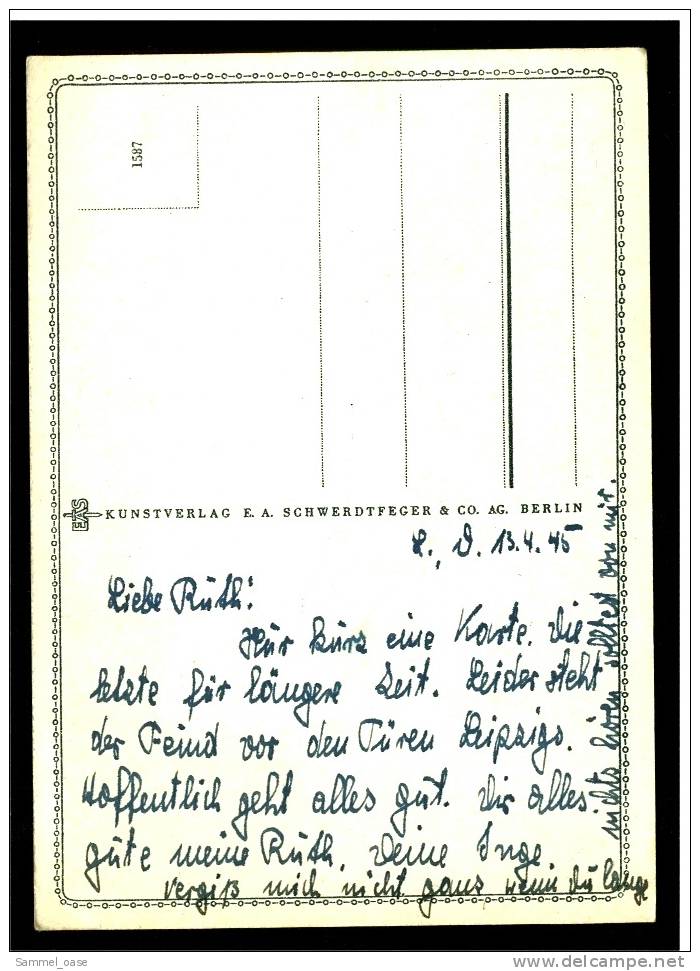 1587
EAS
KUNSTVERLAG E. A. SCHWERDTFEGER & CO. AG. BERLIN
L., d. 13.4.45
Liebe Ruth!
Nur kurz eine Karte. Die
letzte für längere Zeit. Leider steht
der Feind vor den Türen Leipzigs.
Hoffentlich geht alles gut. Dir alles
gute meine Ruth. Deine Inge.
vergiß mich nicht ganz wenn du lange
nichts hören solltest von mir.
Sammel_oase
www.delcampe.net